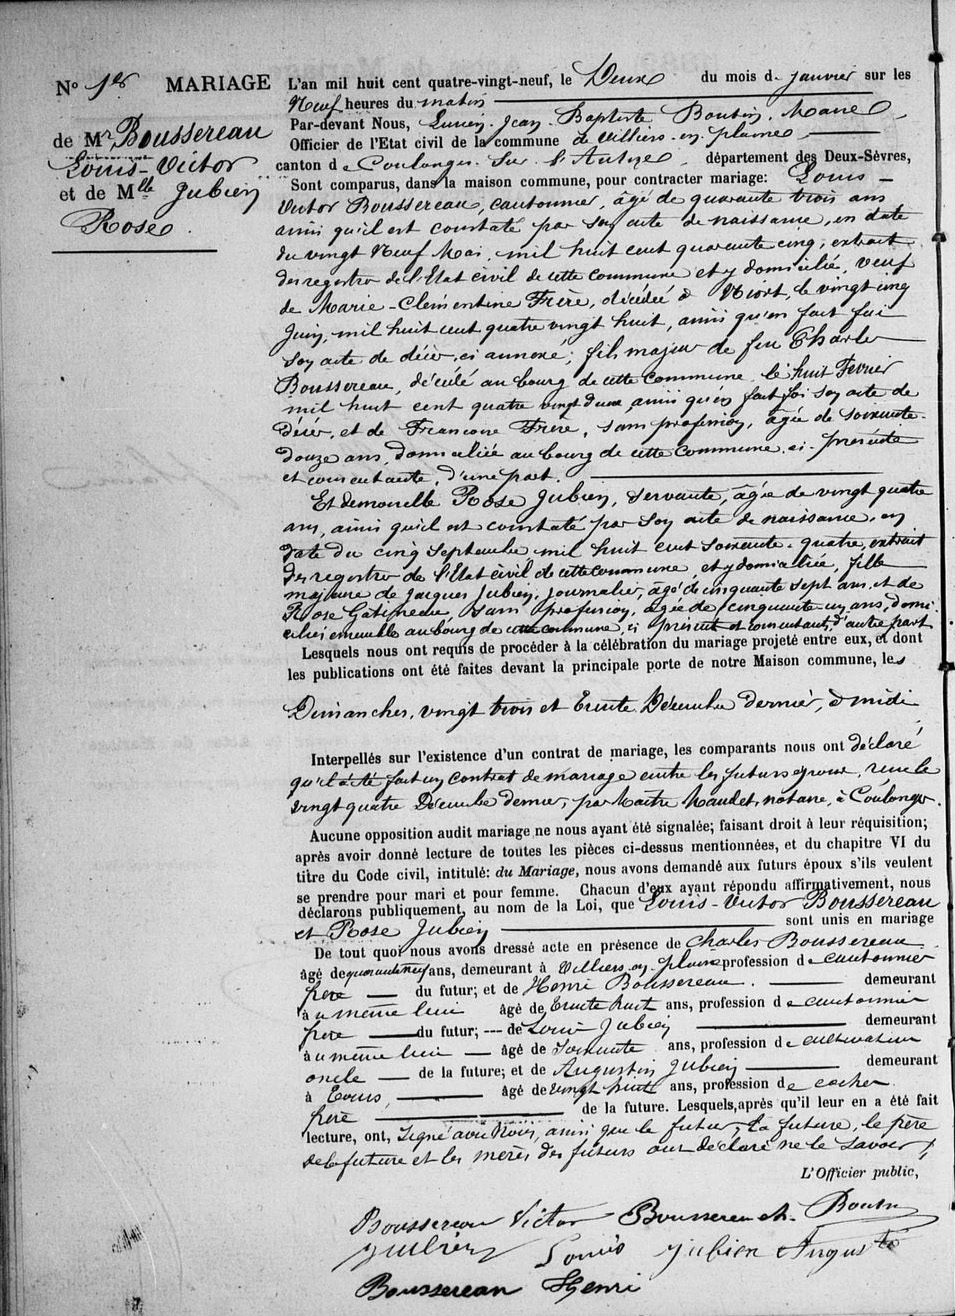 N° 1er MARIAGE
de Mr Boussereau
Louis-Victor
et de Mlle Jubien
Rose.
L'an mil huit cent quatre-vingt-neuf, le Deux du mois de janvier sur les
Neuf heures du matin
Par-devant Nous, Lucien Jean Baptiste Boutin, Maire
Officier de l'Etat civil de la commune de Villiers-en-plaine
canton de Coulonges-sur-l'Autize, département des Deux-Sèvres,
Sont comparus, dans la maison commune, pour contracter mariage: Louis-
Victor Boussereau, cantonnier, âgé de quarante trois ans
ainsi qu'il est constaté par son acte de naissance, en date
du vingt Neuf Mai, mil huit cent quarante cinq, extrait
des registres de l'Etat civil de cette commune et y domicilié, veuf
de Marie-Clémentine Frère, décédée à Niort, le vingt cinq
Juin, mil huit cent quatre vingt huit, ainsi qu'en fait foi
son acte de décès, ci annexé; fils majeur de feu Charles
Boussereau, décédé au bourg de cette commune le huit Février
mil huit cent quatre vingt deux, ainsi qu'en fait foi son acte de
décès, et de Françoise Frère, sans profession, âgée de soixante-
douze ans, domiciliée au bourg de cette commune, ci-présente
et consentante, d'une part.
Et demoiselle Rose Jubien, servante, âgée de vingt quatre
ans, ainsi qu'il est constaté par son acte de naissance, en
date du cinq Septembre, mil huit cent soixante-quatre, extrait
des registres de l'Etat civil de cette commune et y domiciliée, fille
majeure de Jacques Jubien, journalier, âgé de cinquante sept ans, et de
Rose Gatineau, sans profession, âgée de cinquante un ans, domi-
ciliés ensemble au bourg de cette commune, ci présents et consentants, d'autre part
Lesquels nous ont requis de procéder à la célébration du mariage projeté entre eux, et dont
les publications ont été faites devant la principale porte de notre Maison commune, les
Dimanches, vingt trois et trente Décembre dernier, à midi
Interpellés sur l'existence d'un contrat de mariage, les comparants nous ont déclaré
qu'il a été fait un contrat de mariage entre les futurs époux, reçu le
vingt quatre Décembre dernier, par Maître Naudet, notaire, à Coulonges.
Aucune opposition audit mariage ne nous ayant été signalée; faisant droit à leur réquisition;
après avoir donné lecture de toutes les pièces ci-dessus mentionnées, et du chapitre VI du
titre du Code civil, intitulé: du Mariage, nous avons demandé aux futurs époux s'ils veulent
se prendre pour mari et pour femme. Chacun d'eux ayant répondu affirmativement, nous
déclarons publiquement, au nom de la Loi, que Louis-Victor Boussereau
et Rose Jubien sont unis en mariage
De tout quoi nous avons dressé acte en présence de Charles Boussereau
âgé de quarante neuf ans, demeurant à Villiers-en-plaine profession de cantonnier
frère du futur; et de Henri Boussereau demeurant
à u même lieu âgé de trente huit ans, profession de cantonnier
frère du futur; --- de Louis Jubien demeurant
à u même lieu âgé de soixante ans, profession de cultivateur
oncle de la future; et de Augustin Jubien demeurant
à Tours, âgé de vingt huit ans, profession de cocher
frère de la future. Lesquels, après qu'il leur en a été fait
lecture, ont, signé avec Nous, ainsi que le futur, la future, le père
de la future et les mères des futurs ont déclaré ne le savoir
L'Officier public,
Boussereau Victor Boussereau ch. Boutin
Jubien Louis Jubien Auguste
Boussereau Henri